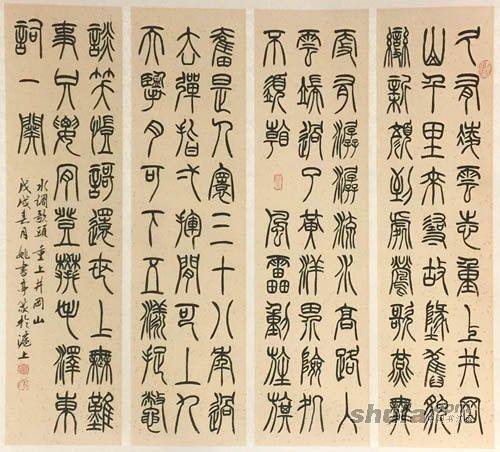 久有凌雲志重上井岡
山千里來尋故地舊貌
變新顏到處鶯歌燕舞
更有潺潺流水高路入
雲端過了黃洋界險處
不須看 風雷動旌旗
奮是人寰三十八年過
去彈指一揮間可上九
天攬月可下五洋捉鱉
談笑凱歌還世上無難
事只要肯登攀毛澤東
詞一闋
水調歌頭 重上井岡山
戊戌春月 姚書亭篆於滬上